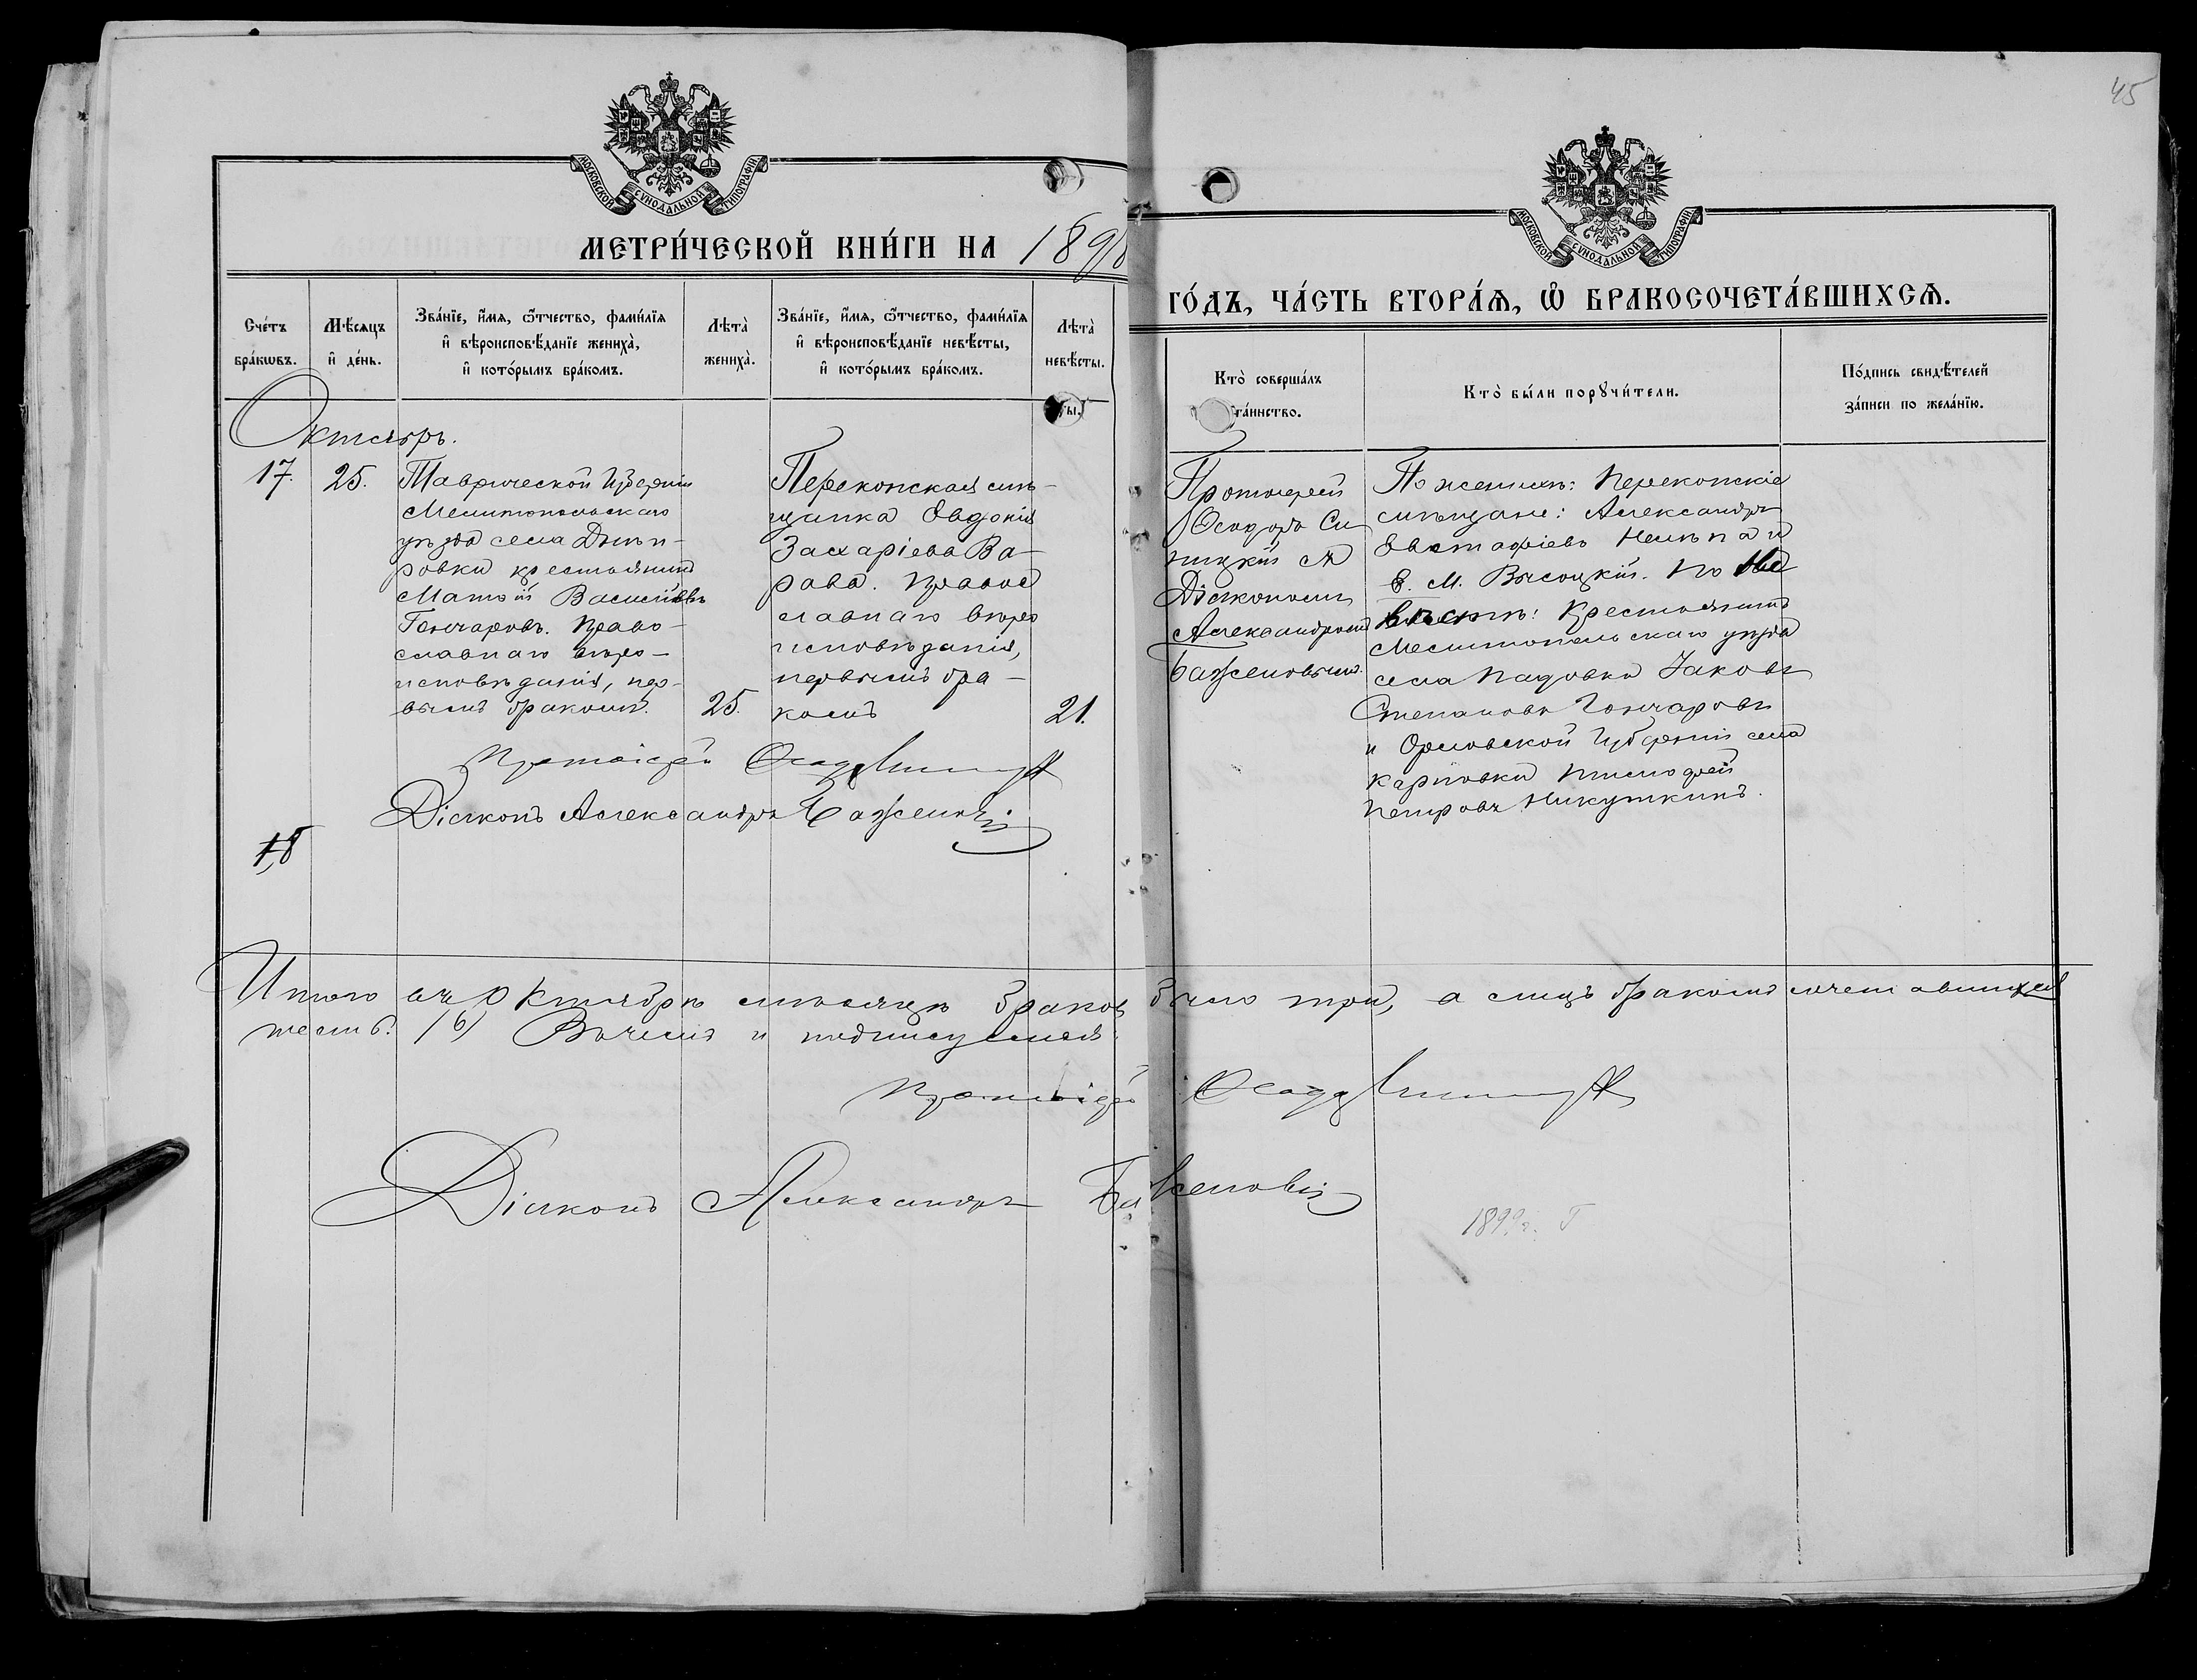 45
МОСКОВСКОЙ СѴНОДАЛЬНОЙ ТИПОГРАФІИ
МОСКОВСКОЙ СѴНОДАЛЬНОЙ ТИПОГРАФІИ
МЕТРИ́ЧЕСКОЙ КНИ́ГИ НА 1898
ГО́ДЪ, ЧА́СТЬ ВТОРА́Ѧ, Ѡ҆ БРАКОСОЧЕТА́ВШИХСѦ.
Сче́тъ
бра́кѡвъ.
Мѣ́сяцъ
и҆ де́нь.
Зва́нїе, и҆́мѧ, ѻ҆́тчество, фами́лїѧ
и҆ вѣроисповѣ́данїе жениха̀,
и҆ кото́рымъ бра́комъ.
Лѣта̀
жениха̀.
Зва́нїе, и҆́мѧ, ѻ҆́тчество, фами́лїѧ
и҆ вѣроисповѣ́данїе невѣ́сты,
и҆ кото́рымъ бра́комъ.
Лѣта̀
невѣ́сты.
Кто̀ соверша́лъ
та́инство.
Кто̀ бы́ли порꙋчи́тели.
По́дпись свидѣ́телей
за́писи по жела́нїю.
Октябрь.
17.
25.
Таврической Губерніи
Мелитопольскаго
уѣзда села Днѣп-
ровки крестьянинъ
Матѳій Васильевъ
Гончаровъ. Право-
славнаго вѣро-
исповѣданія, пер-
вымъ бракомъ.
25.
Перекопская мѣ-
щанка Евдокія
Захаріева Ва-
рава. Правос
лавнаго вѣро
исповѣданія,
первымъ бра-
комъ
21.
Протоіерей
Ѳеодоръ Си
ницкій съ
Діакономъ
Александромъ
Баженовымъ.
По женихѣ: Перекопскіе
мѣщане: Александръ
Евстафіевъ и
В. М. Высоцкій. По не
вѣстѣ: Крестьянинъ
Мелитопольскаго уѣзда
села Іаковъ
Степановъ Гончаровъ
и Орловской Губерніи села
Карповки Тимофей
Петровъ Никушкинъ.
Протоіерей Ѳеодоръ Синицкій
Діаконъ Александръ Баженовъ
18
Итого въ Октябрѣ мѣсяцѣ браковъ было три, а лицъ бракомъ сочетавшихся
шесть. (6) Въ чемъ и подписуемся:
Протоіерей Ѳеодоръ Синицкій
Діаконъ Александръ Баженовъ
1899 г.